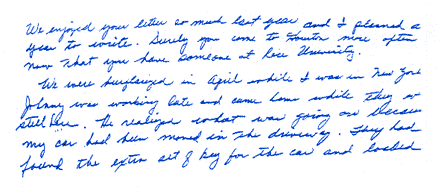 We enjoyed your letter so much last year and I planned a
year to write. Surely you come to Houston more often
now that you have someone at Rice University.
We were burglarized in April while I was in New York
Johnny was working late and came home while they were
still here. He realized what was going on because
my car had been moved in the driveway. They had
found the extra set of keys for the car and loaded